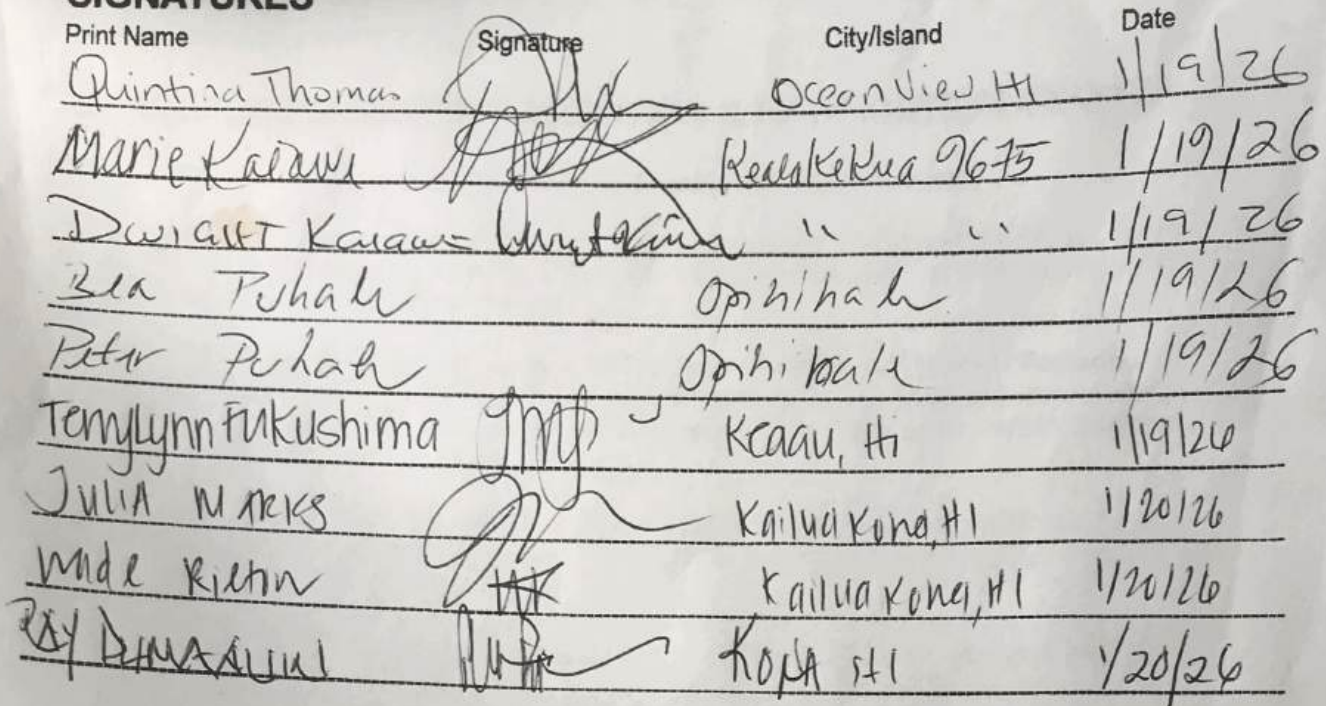 SIGNATURES
Print Name Signature City/Island Date
Quintina Thomas Ocean View HI 1/19/26
Marie Kealakekua 9675 1/19/26
Dwight " " 1/19/26
Bea Puhale Opihihale 1/19/26
Peter Puhale Opihihale 1/19/26
TerryLynn Fukushima Keaau, Hi 1/19/26
Julia Marks Kailua Kona, HI 1/20/26
Wade Kailua Kona, HI 1/20/26
Ray Kona HI 1/20/26